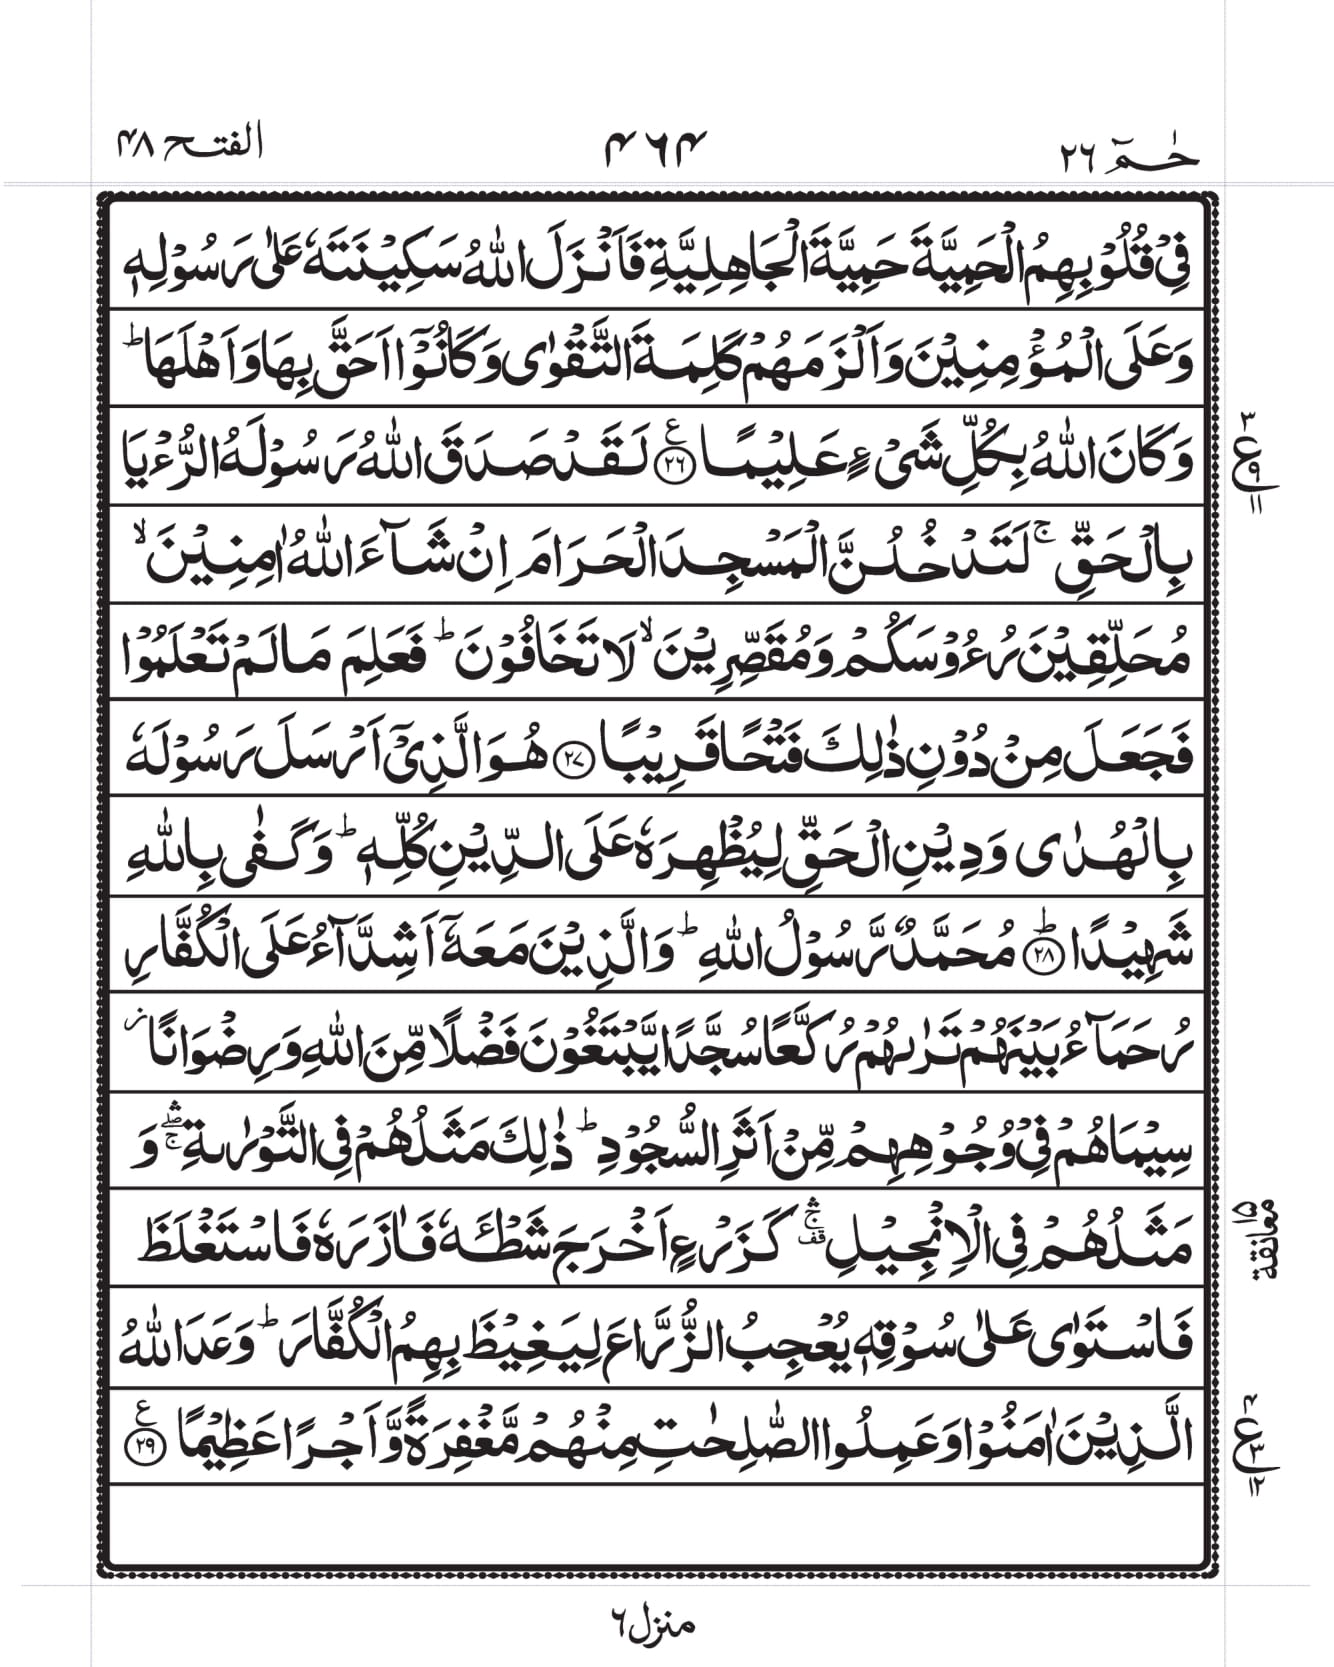 حٰمٓ ٢٦
۴۶۴
الفتح ۴۸
فِیْ قُلُوْبِهِمُ الْحَمِیَّةَ حَمِیَّةَ الْجَاهِلِیَّةِ فَاَنْزَلَ اللّٰهُ سَكِیْنَتَهٗ عَلٰی رَسُوْلِهٖ
وَعَلَی الْمُؤْمِنِیْنَ وَاَلْزَمَهُمْ كَلِمَةَ التَّقْوٰی وَكَانُوْۤا اَحَقَّ بِهَا وَاَهْلَهَا ؕ
وَكَانَ اللّٰهُ بِكُلِّ شَیْءٍ عَلِیْمًا ع ﴿۲۶﴾ لَقَدْ صَدَقَ اللّٰهُ رَسُوْلَهُ الرُّءْیَا
٣ ع ٩ ١١
بِالْحَقِّ ۚ لَتَدْخُلُنَّ الْمَسْجِدَ الْحَرَامَ اِنْ شَآءَ اللّٰهُ اٰمِنِیْنَ ۙ
مُحَلِّقِیْنَ رُءُوْسَكُمْ وَمُقَصِّرِیْنَ ۙ لَا تَخَافُوْنَ ؕ فَعَلِمَ مَا لَمْ تَعْلَمُوْا
فَجَعَلَ مِنْ دُوْنِ ذٰلِكَ فَتْحًا قَرِیْبًا ﴿۲۷﴾ هُوَ الَّذِیْۤ اَرْسَلَ رَسُوْلَهٗ
بِالْهُدٰی وَدِیْنِ الْحَقِّ لِیُظْهِرَهٗ عَلَی الدِّیْنِ كُلِّهٖ ؕ وَكَفٰی بِاللّٰهِ
شَهِیْدًا ؕ ﴿۲۸﴾ مُحَمَّدٌ رَّسُوْلُ اللّٰهِ ؕ وَالَّذِیْنَ مَعَهٗۤ اَشِدَّآءُ عَلَی الْكُفَّارِ
رُحَمَآءُ بَیْنَهُمْ تَرٰىهُمْ رُكَّعًا سُجَّدًا یَّبْتَغُوْنَ فَضْلًا مِّنَ اللّٰهِ وَرِضْوَانًا ؗ
سِیْمَاهُمْ فِیْ وُجُوْهِهِمْ مِّنْ اَثَرِ السُّجُوْدِ ؕ ذٰلِكَ مَثَلُهُمْ فِی التَّوْرٰىةِ ۛ ۖ ۚ وَ
مَثَلُهُمْ فِی الْاِنْجِیْلِ ۛ ۚ قف كَزَرْعٍ اَخْرَجَ شَطْـَٔهٗ فَاٰزَرَهٗ فَاسْتَغْلَظَ
معانقة ١٥
فَاسْتَوٰی عَلٰی سُوْقِهٖ یُعْجِبُ الزُّرَّاعَ لِیَغِیْظَ بِهِمُ الْكُفَّارَ ؕ وَعَدَ اللّٰهُ
الَّذِیْنَ اٰمَنُوْا وَعَمِلُوا الصّٰلِحٰتِ مِنْهُمْ مَّغْفِرَةً وَّاَجْرًا عَظِیْمًا ع ﴿۲۹﴾
۴ ع ٣ ١٢
منزل ۶